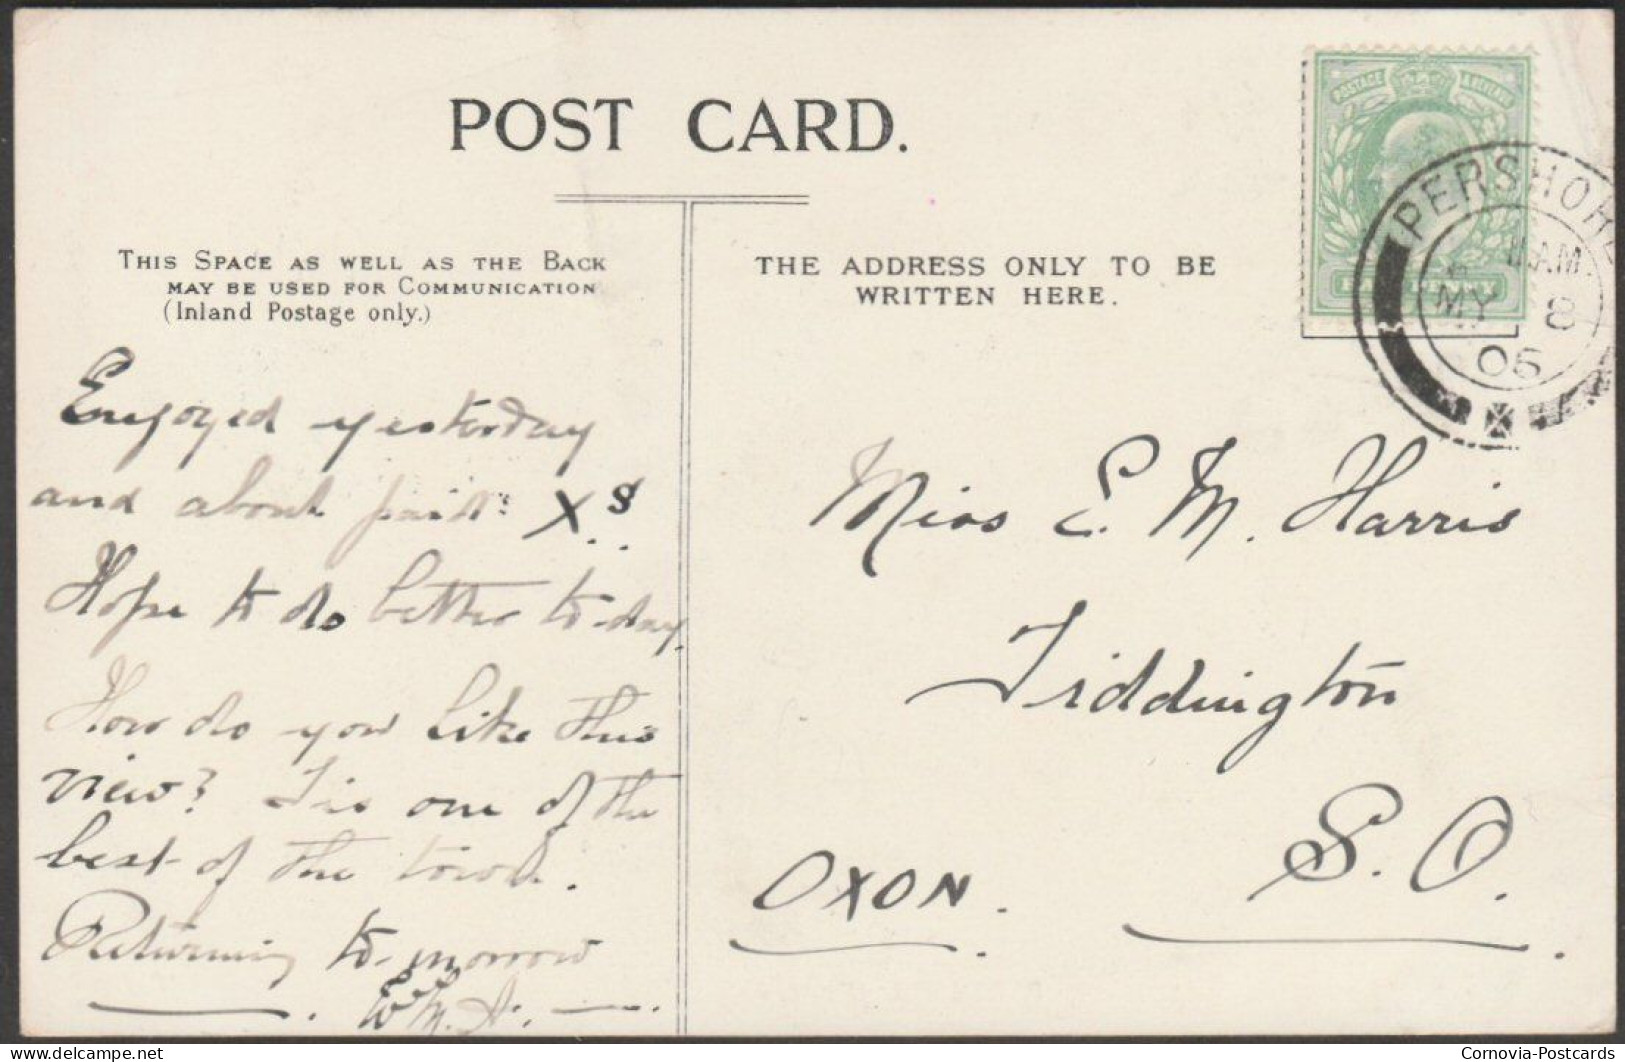 POST CARD.
THIS SPACE AS WELL AS THE BACK
MAY BE USED FOR COMMUNICATION
(Inland Postage only.)
THE ADDRESS ONLY TO BE
WRITTEN HERE.
POSTAGE & REVENUE
HALFPENNY
PERSHORE
11 AM
MY 8
06
Enjoyed yesterday
and about paid Xs
Hope to do better to-day.
How do you like this
view? Tis one of the
best of the town.
Returning to-morrow
Miss E. M. Harris
Tiddington
S.O.
OXON.
delcampe.net
Cornovia-Postcards